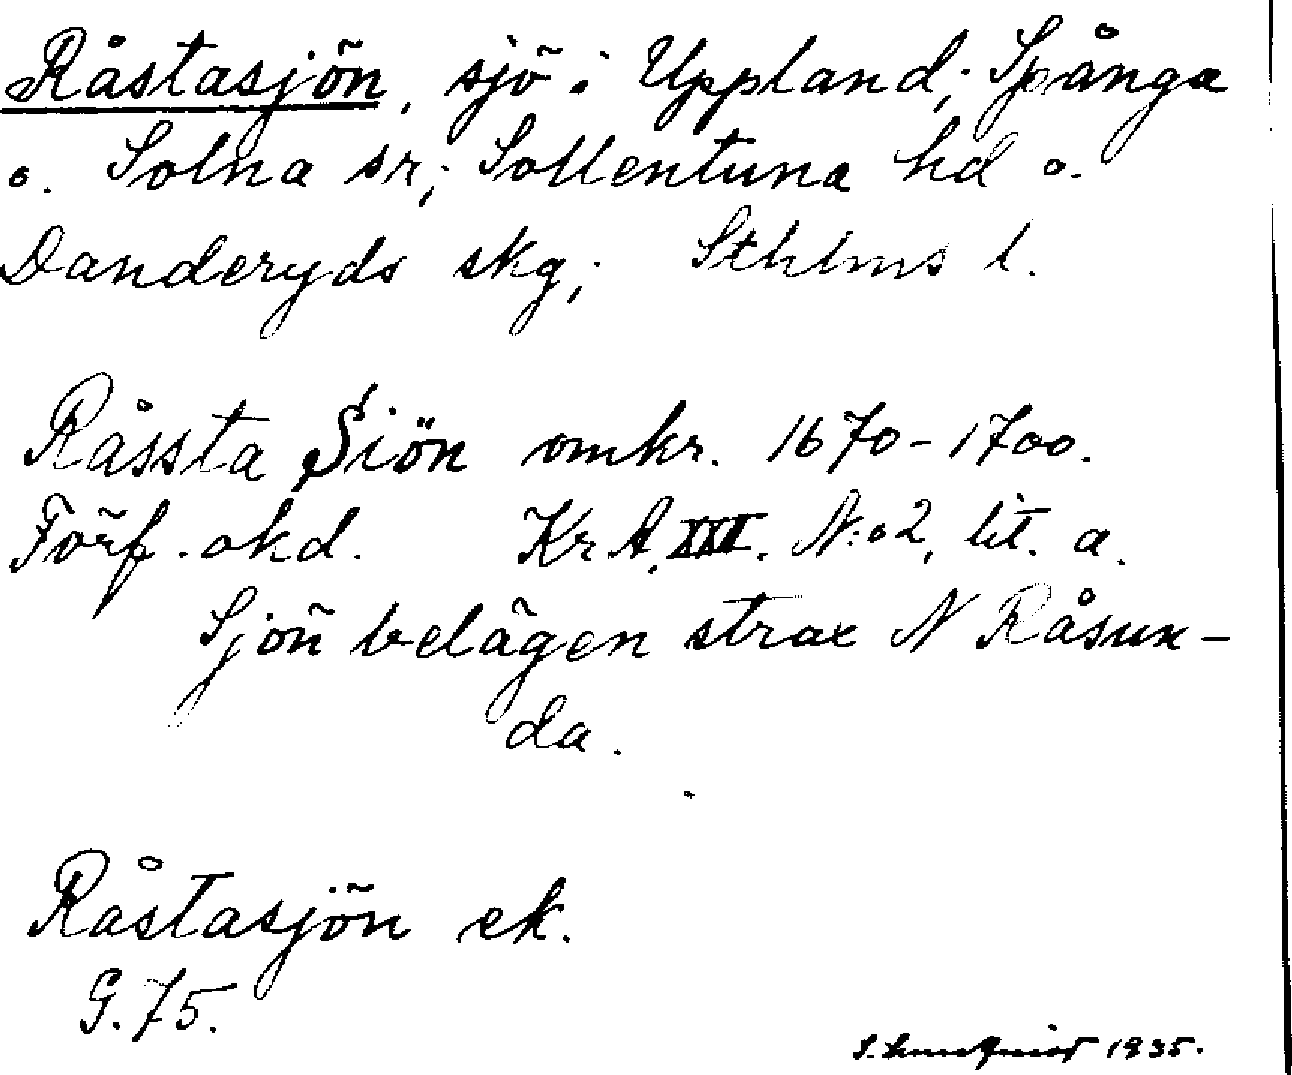 Råstasjön, sjö i Uppland; Spånga
o. Solna sr; Sollentuna hd o.
Danderyds skg; Sthlms l.
Råssta Siön omkr. 1670-1700.
Förf. okd. KrA, XXI. N:o 2, lit. a.
Sjön belägen strax N Råsun-
da.
Råstasjön ek.
G. 75.
1935.